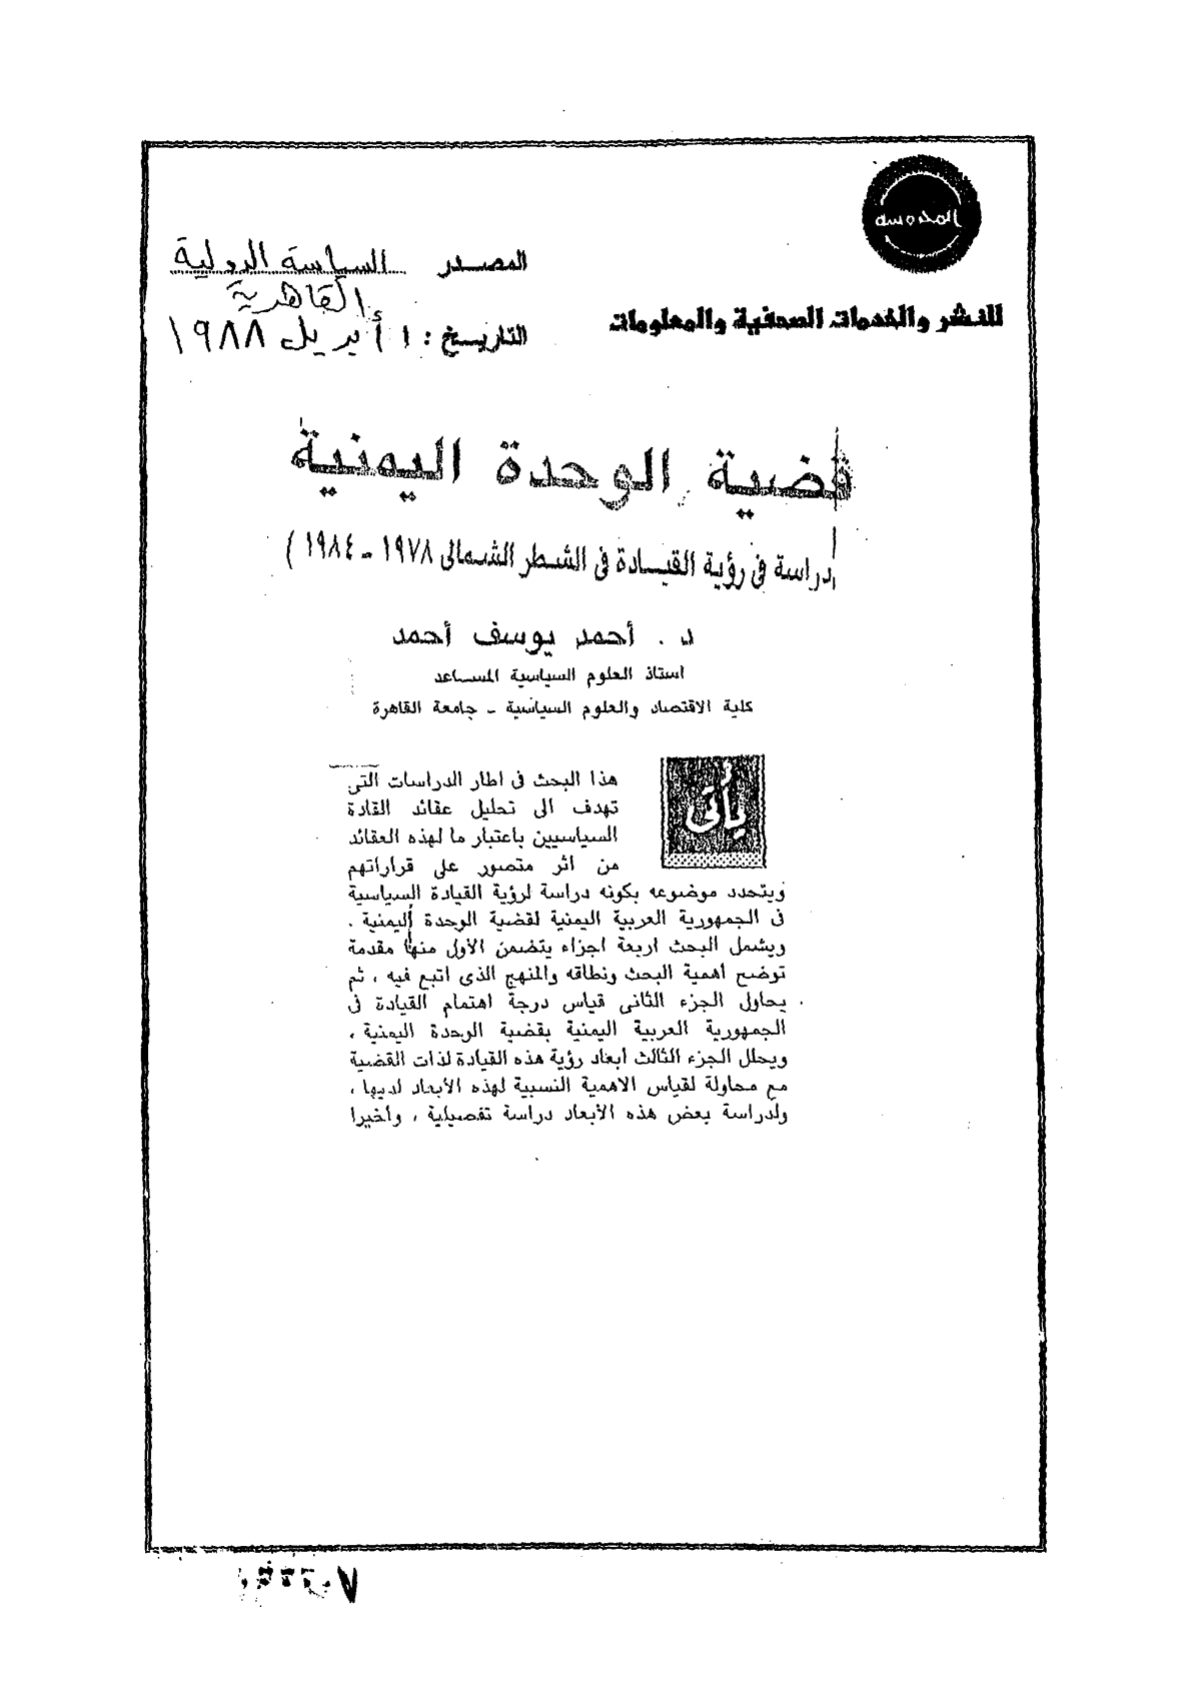 المحروسة
للنشر والخدمات الصحفية والمعلومات
المصدر السياسة الدولية
القاهرية
التاريخ : ١ أبريل ١٩٨٨
قضية الوحدة اليمنية
دراسة فى رؤية القيادة فى الشطر الشمالى ١٩٧٨ - ١٩٨٤ )
د . أحمد يوسف أحمد
استاذ العلوم السياسية المساعد
كلية الاقتصاد والعلوم السياسية - جامعة القاهرة
يأتى
هذا البحث فى اطار الدراسات التى
تهدف الى تحليل عقائد القادة
السياسيين باعتبار ما لهذه العقائد
من اثر متصور على قراراتهم
ويتحدد موضوعه بكونه دراسة لرؤية القيادة السياسية
فى الجمهورية العربية اليمنية لقضية الوحدة اليمنية .
ويشمل البحث اربعة اجزاء يتضمن الأول منها مقدمة
توضح أهمية البحث ونطاقه والمنهج الذى اتبع فيه ، ثم
يحاول الجزء الثانى قياس درجة اهتمام القيادة فى
الجمهورية العربية اليمنية بقضية الوحدة اليمنية ،
ويحلل الجزء الثالث أبعاد رؤية هذه القيادة لذات القضية
مع محاولة لقياس الاهمية النسبية لهذه الأبعاد لديها ،
ولدراسة بعض هذه الأبعاد دراسة تفصيلية ، وأخيرا